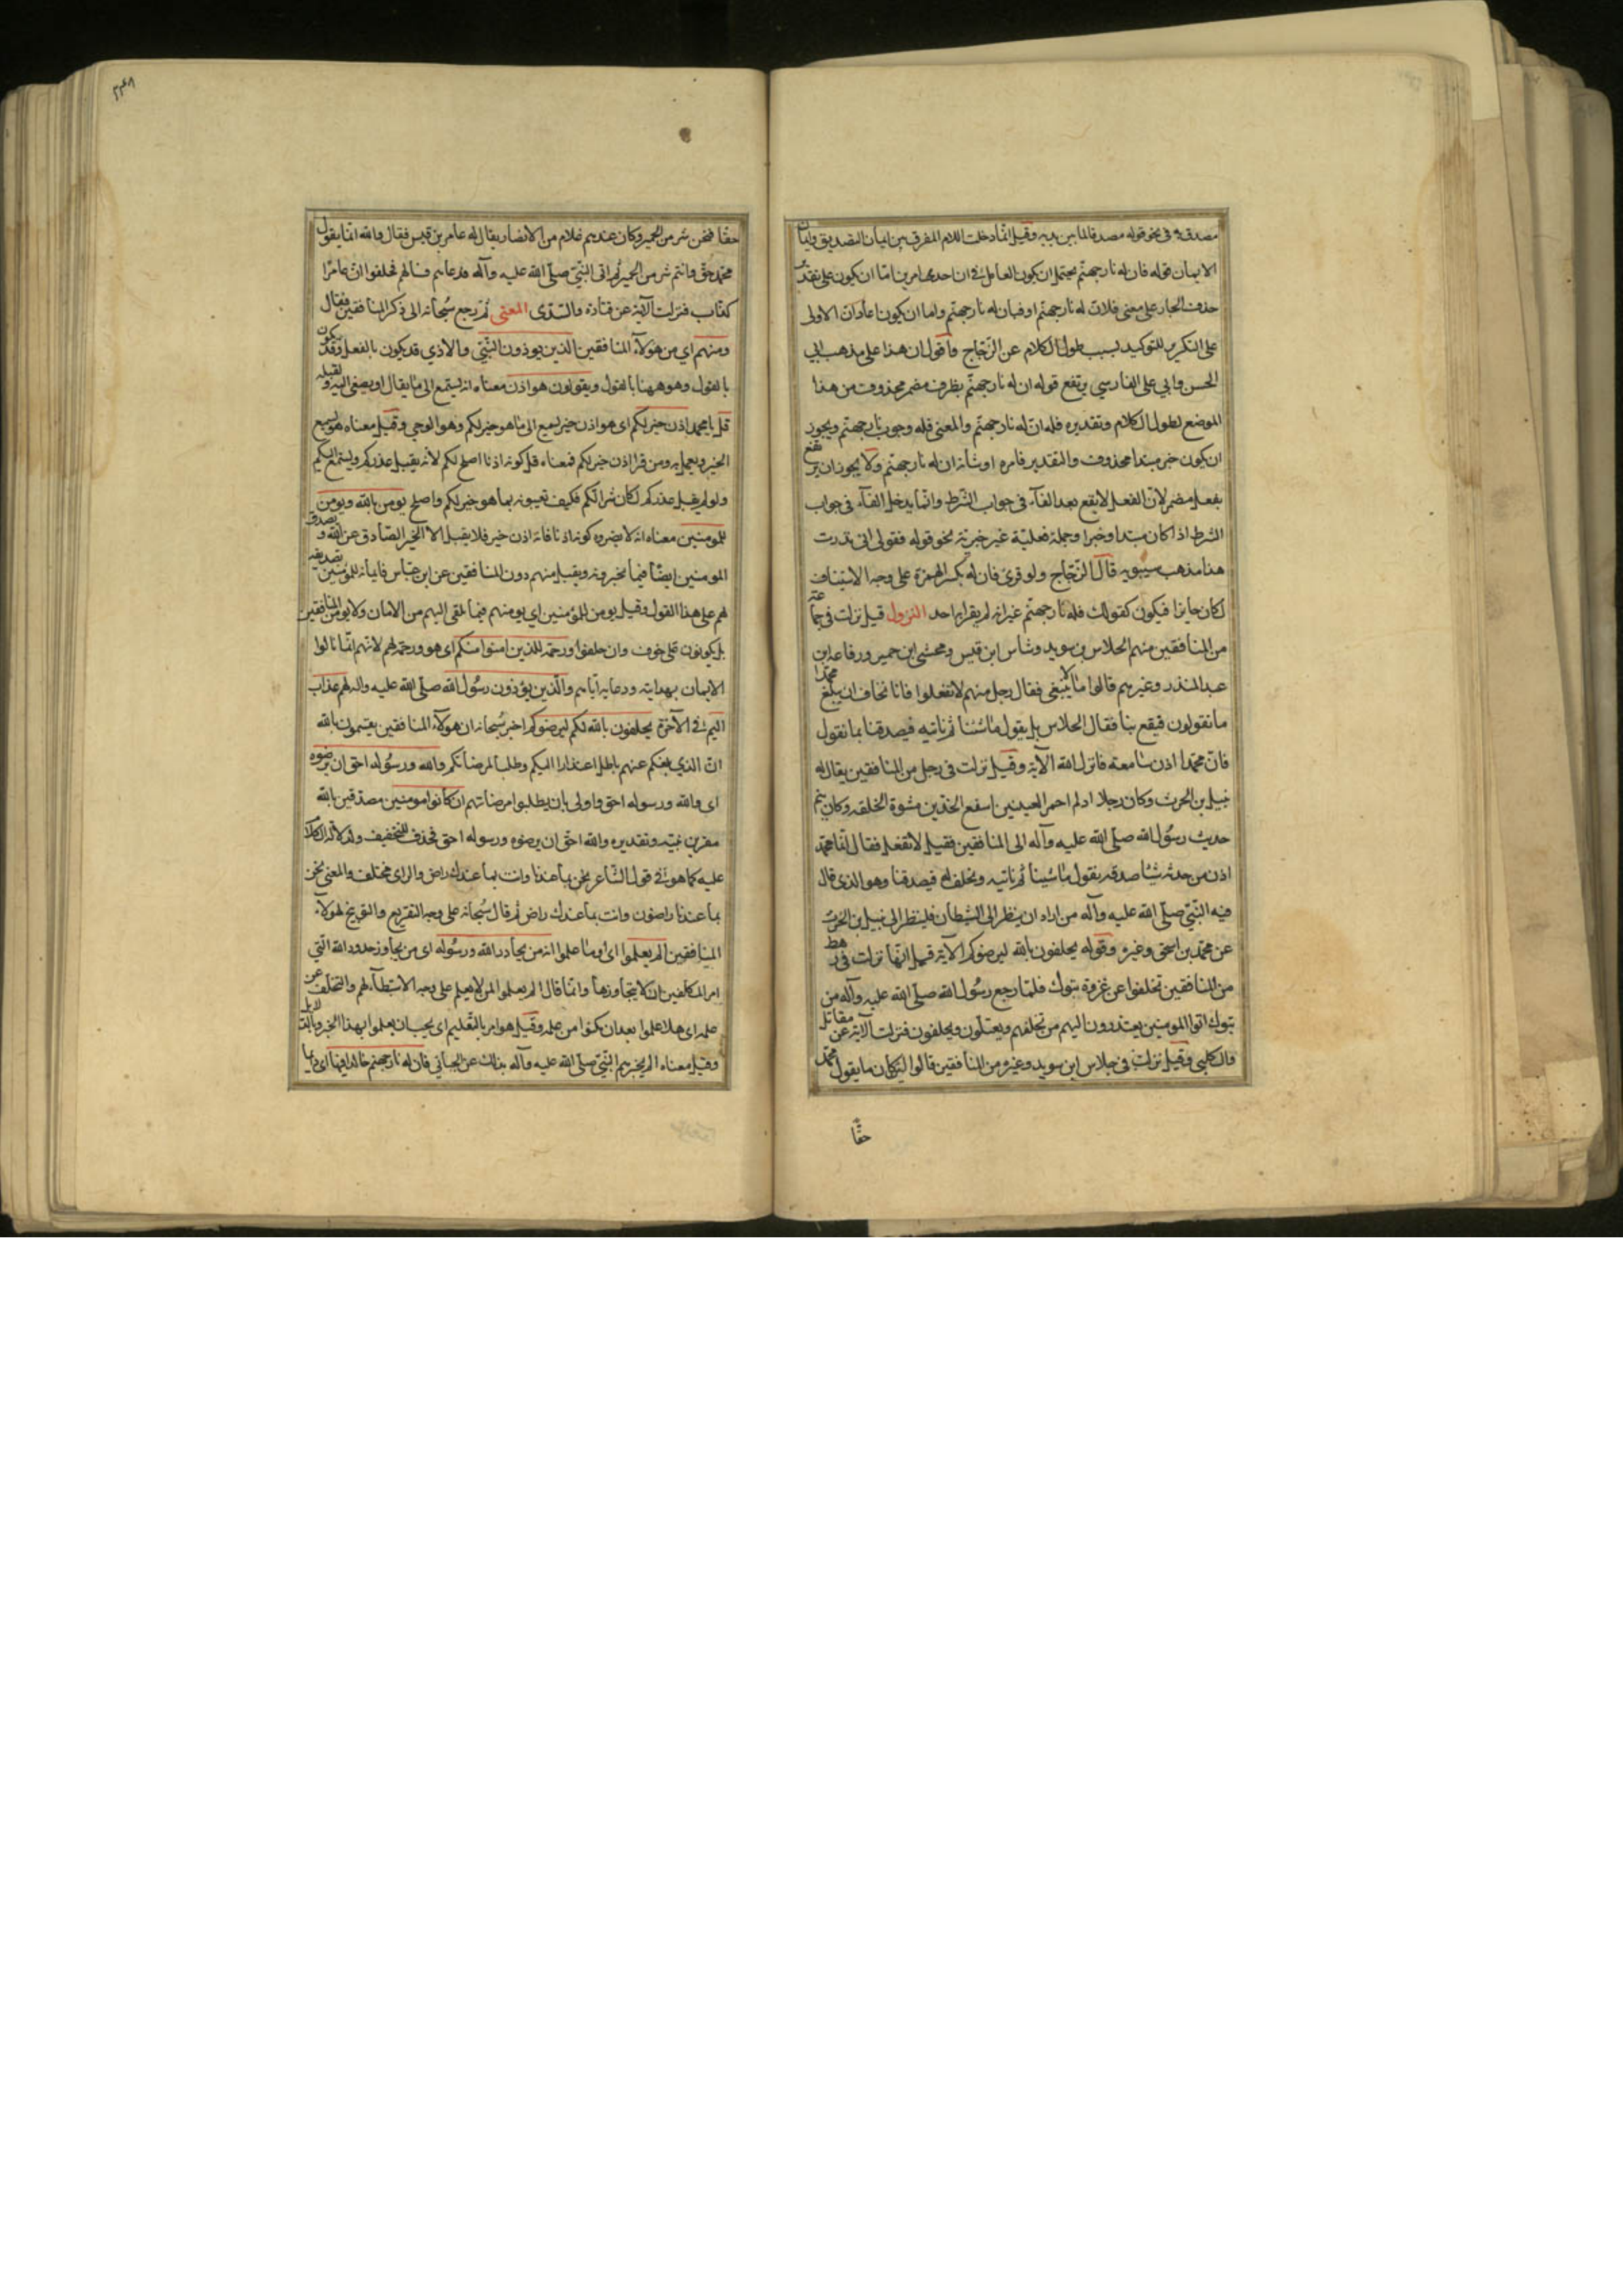 مصدقيه في نحو قوله مصدقا لما بين يديه وقيل انّما دخلت اللام للفرق بين ايمان التصديق وايمان
الايمان قوله فان له نار جهنّم يحتمل ان يكون العامل في ان احدى امرين امّا ان يكون على تقدير
حذف الجار على معنى فلانّ له نار جهنّم او فبان له نار جهنّم واما ان يكون اعاد انّ الاولى
على التكرير للتوكيد لسبب طول الكلام عن الزّجاج وأقول ان هذا على مذهب ابي
الحسن وابي على الفارسي يرتفع قوله ان له نار جهنّم بظرف مضمر محذوف من هذا
الموضع لطول الكلام وتقديره فله انّ له نار جهنّم والمعنى فله وجوب نار جهنّم ويجوز
ان يكون خبر مبتدا محذوف والتقدير فامره او شانه ان له نار جهنّم ولا يجوز ان يرتفع
بفعل مضمر لانّ الفعل لا يقع بعد الفآء في جواب الشرط وانّما يدخل الفآء في جواب
الشرط اذا كان مبتدا وخبرا وجملة فعليّة غير خبريّة نحو قوله فقولي اني نذرت
هذا مذهب سيبويه قال الزّجاج ولو قرئ فان له بكسر الهمزة على وجه الاستيناف
لكان جايزا فيكون كقولك فله نار جهنّم غير انه لم يقرا به احد النزول قيل نزلت في جماعة
من المنافقين منهم الجلاس بن سويد وشاس ابن قيس ومخشي ابن حمير ورفاعة ابن
عبد المنذر وغيرهم قالوا ما لا ينبغي فقال رجل منهم لا تفعلوا فانا نخاف ان يبلغ محمّدا
ما تقولون فيقع بنا فقال الجلاس بل يقول ما شئنا ثم ناتيه فيصدقنا بما نقول
فانّ محمّدا اذن سامعة فانزل الله الآية وقيل نزلت في رجل من المنافقين يقال له
نبتل بن الحرث وكان رجلا ادلم احمر العينين اسفع الخدّين مشوه الخلقه وكان ينم
حديث رسول الله صلّى الله عليه وآله الى المنافقين فقيل لا تفعل فقال انّما محمّد
اذن من حدثه شيئا صدقه نقول ما شينا ثم ناتيه ونحلف له فيصدقنا وهو الذي قال
فيه النّبيّ صلّى الله عليه وآله من اراد ان ينظر الى الشيطان فلينظر الى نبتل بن الحرث
عن محمّد بن اسحق وغيره وقوله يحلفون بالله ليرضوكم الآية قيل انّها نزلت في رهط
من المنافقين تخلفوا عن غزوة تبوك فلمّا رجع رسول الله صلّى الله عليه وآله من
تبوك اتوا المومنين يعتذرون اليهم من تخلفهم ويعتلّون ويحلفون فنزلت الآية عن مقاتل
والكلبي وقيل نزلت في جلاس ابن سويد وغيره من المنافقين قالوا لئن كان ما يقول محمّد
حقّا
٢٣٨
حقّا فنحن شر من الحمير وكان عندهم غلام من الانصار يقال له عامر بن قيس فقال والله انّما يقول
محمّد حقّ وانتم شر من الحمير ثم اتى النّبيّ صلّى الله عليه وآله فدعاهم فسالهم فحلفوا انّ عامرًا
كذّاب فنزلت الآية عن قتادة والسّدى المعنى ثم رجع سبحانه الى ذكر المنافقين فقال
ومنهم اي من هولآء المنافقين الذين يوذون النّبيّ والاذي قد يكون بالفعل وقد يكون
بالقول وهو ههنا بالقول ويقولون هو اذن معناه انه يستمع الى ما يقال او يصغى اليه ويقبله
قل يا محمد اذن خير لكم اى هو اذن خير يسمع الى ما هو خير لكم وهو الوحي وقيل معناه هو يسمع
الخير ويعمل به ومن قرا اذن خير لكم فمعناه قل كونه اذنا اصلح لكم لانّه يقبل عذركم ويستمع اليكم
ولو لم يقبل عذركم لكان شرا لكم فكيف تعيبونه بما هو خير لكم واصلح يومن بالله ويومن
للمومنين معناه انه لا يضره كونه اذنا فانه اذن خير فلا يقبل الا الخبر الصّادق عن الله ويصدق
المومنين ايضًا فيما يخبرونه ويقبل منهم دون المنافقين عن ابن عبّاس فايمانه للمؤمنين تصديقه
لهم على هذا القول وقيل يومن للمؤمنين اي يومنهم فيما يلقى اليهم من الامان ولا يومن المنافقين
بل يكونون على خوف وان حلفوا ورحمة للذين امنوا منكم اى هو رحمة لهم لانّهم انّما نالوا
الايمان بهدايته ودعايه ايّاهم والّذين يؤذون رسول الله صلّى الله عليه واله لهم عذاب
اليم في الآخرة يحلفون بالله لكم ليرضوكم اخبر سبحانه ان هولآء المنافقين يقسمون بالله
انّ الذي بلغكم عنهم باطل اعتذارا اليكم وطلبا لمرضاتكم والله ورسوله احق ان يرضوه
اى والله ورسوله احق واولى بان يطلبوا مرضاتهم ان كانوا مومنين مصدّقين بالله
مقرّين بنبيّه وتقديره والله احقّ ان يرضوه ورسوله احق فحذف للتخفيف ولدلالة الكلام
عليه كما هو في قول الشّاعر نحن بما عندنا وانت بما عندك راض والراى مختلف والمعنى نحن
بما عندنا راضون وانت بما عندك راض ثم قال سبحانه على وجه التقريع والتوبيخ لهولآء
المنافقين ألم يعلموا اى اوما علموا انه من يحادد الله ورسوله اى من يجاوز حدود الله الّتي
امر المكلّفين ان لا يتجاوزها وانّما قال الم يعلموا لمن لا يعلم على وجه الاستبطآء لهم والتخلّف عن
علمه اى هلا علموا بعد ان مكنوا من علمه وقيل هو امر بالتّعليم اى يجب ان يعلموا بهذا الخبر وبالدليل
وقيل معناه الم يخبرهم النّبيّ صلّى الله عليه وآله بذلك عن الجبائي فان له نار جهنم خالدا فيها اى دايما